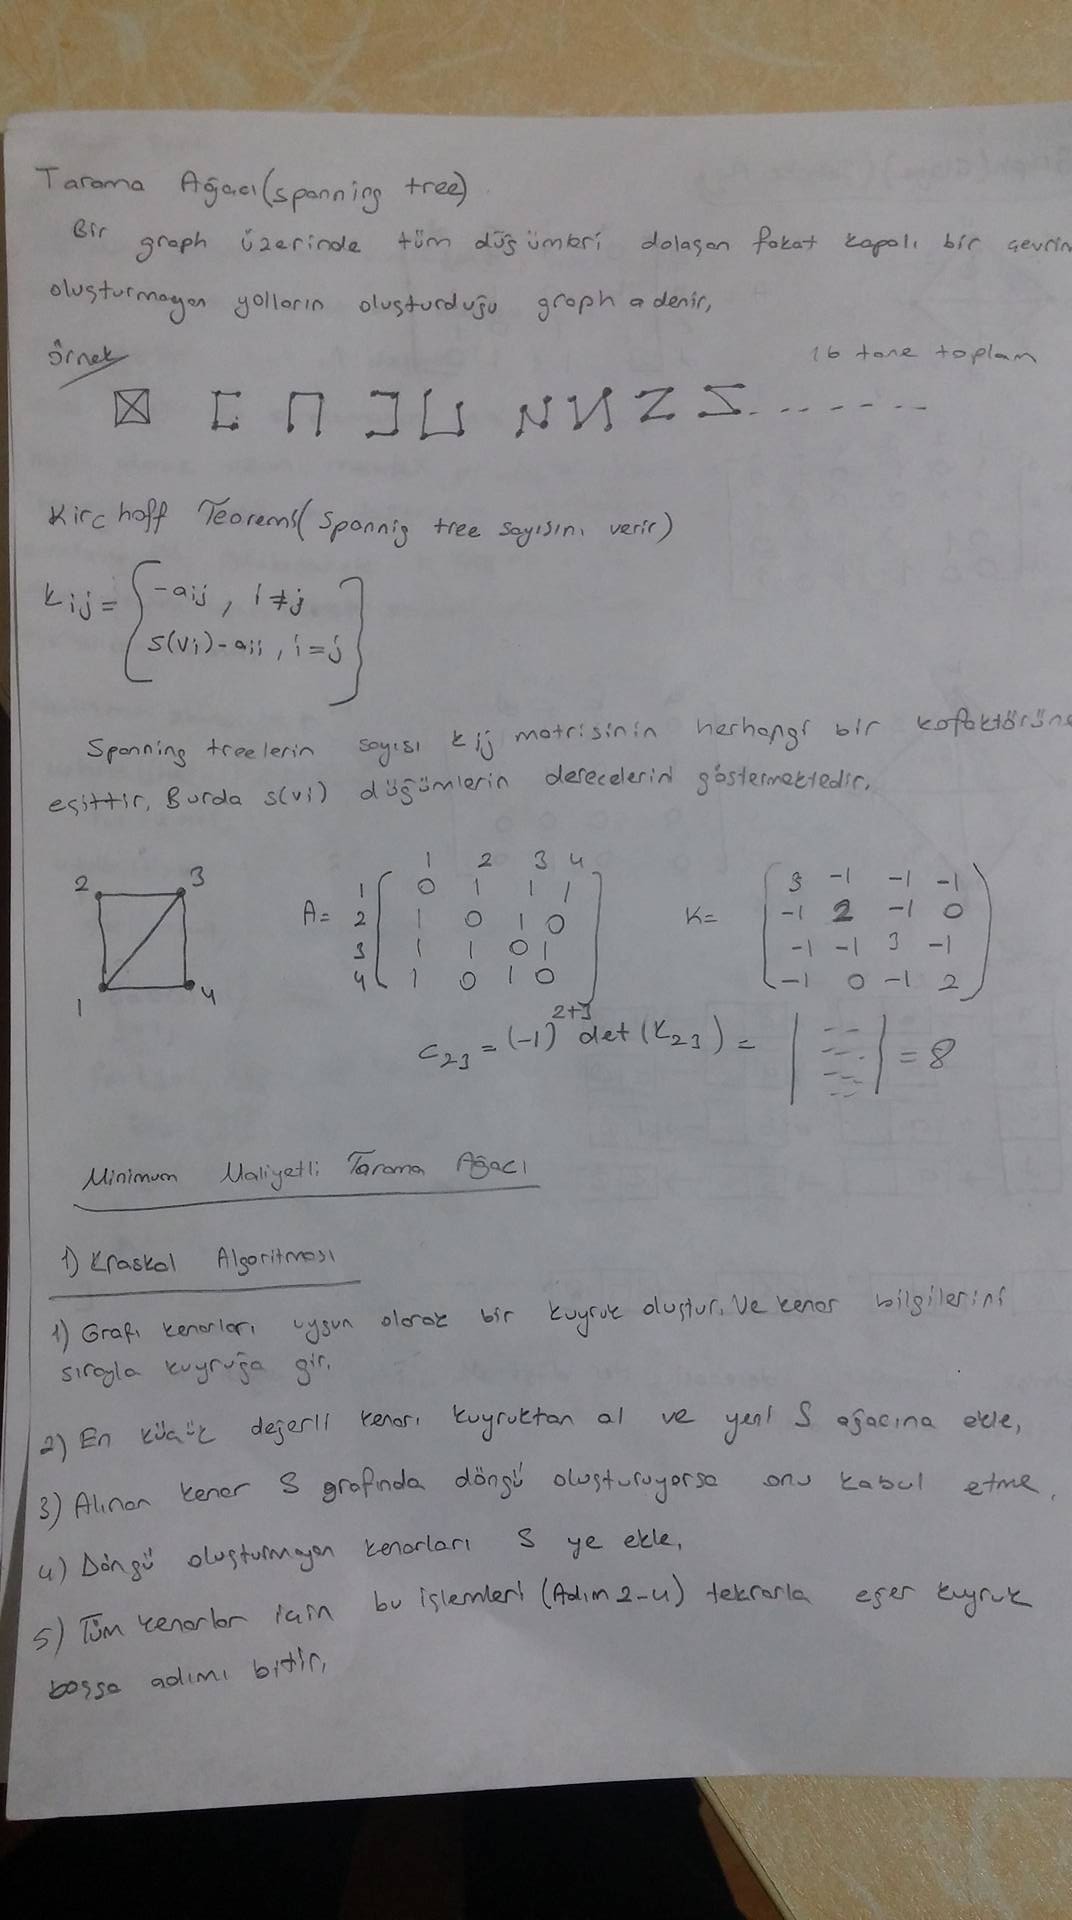 Tarama Ağacı (spanning tree)
Bir graph üzerinde tüm düğümleri dolaşan fakat kapalı bir çevrim
oluşturmayan yolların oluşturduğu graph a denir.
Örnek
16 tane toplam
Kirchoff Teoremi (Spannig tree sayısını verir)
kij = { -aij , i≠j
s(vi) - aii , i=j }
Spanning treelerin sayısı kij matrisinin herhangi bir kofaktörüne
eşittir. Burda s(vi) düğümlerin derecelerini göstermektedir.
2 3
1 4
1 2 3 4
1 0 1 1 1
A= 2 1 0 1 0
3 1 1 0 1
4 1 0 1 0
K=
3 -1 -1 -1
-1 2 -1 0
-1 -1 3 -1
-1 0 -1 2
c23 = (-1)^2+3 det (K23) = | | = 8
Minimum Maliyetli Tarama Ağacı
1) Kraskal Algoritması
1) Grafı kenarları uygun olarak bir kuyruk oluştur. Ve kenar bilgilerini
sırayla kuyruğa gir.
2) En küçük değerli kenarı kuyruktan al ve yeni S ağacına ekle,
3) Alınan kenar S grafında döngü oluşturuyorsa onu kabul etme.
4) Döngü oluşturmayan kenarları S ye ekle,
5) Tüm kenarlar için bu işlemleri (Adım 2-4) tekrarla eğer kuyruk
boşsa adımı bitir.